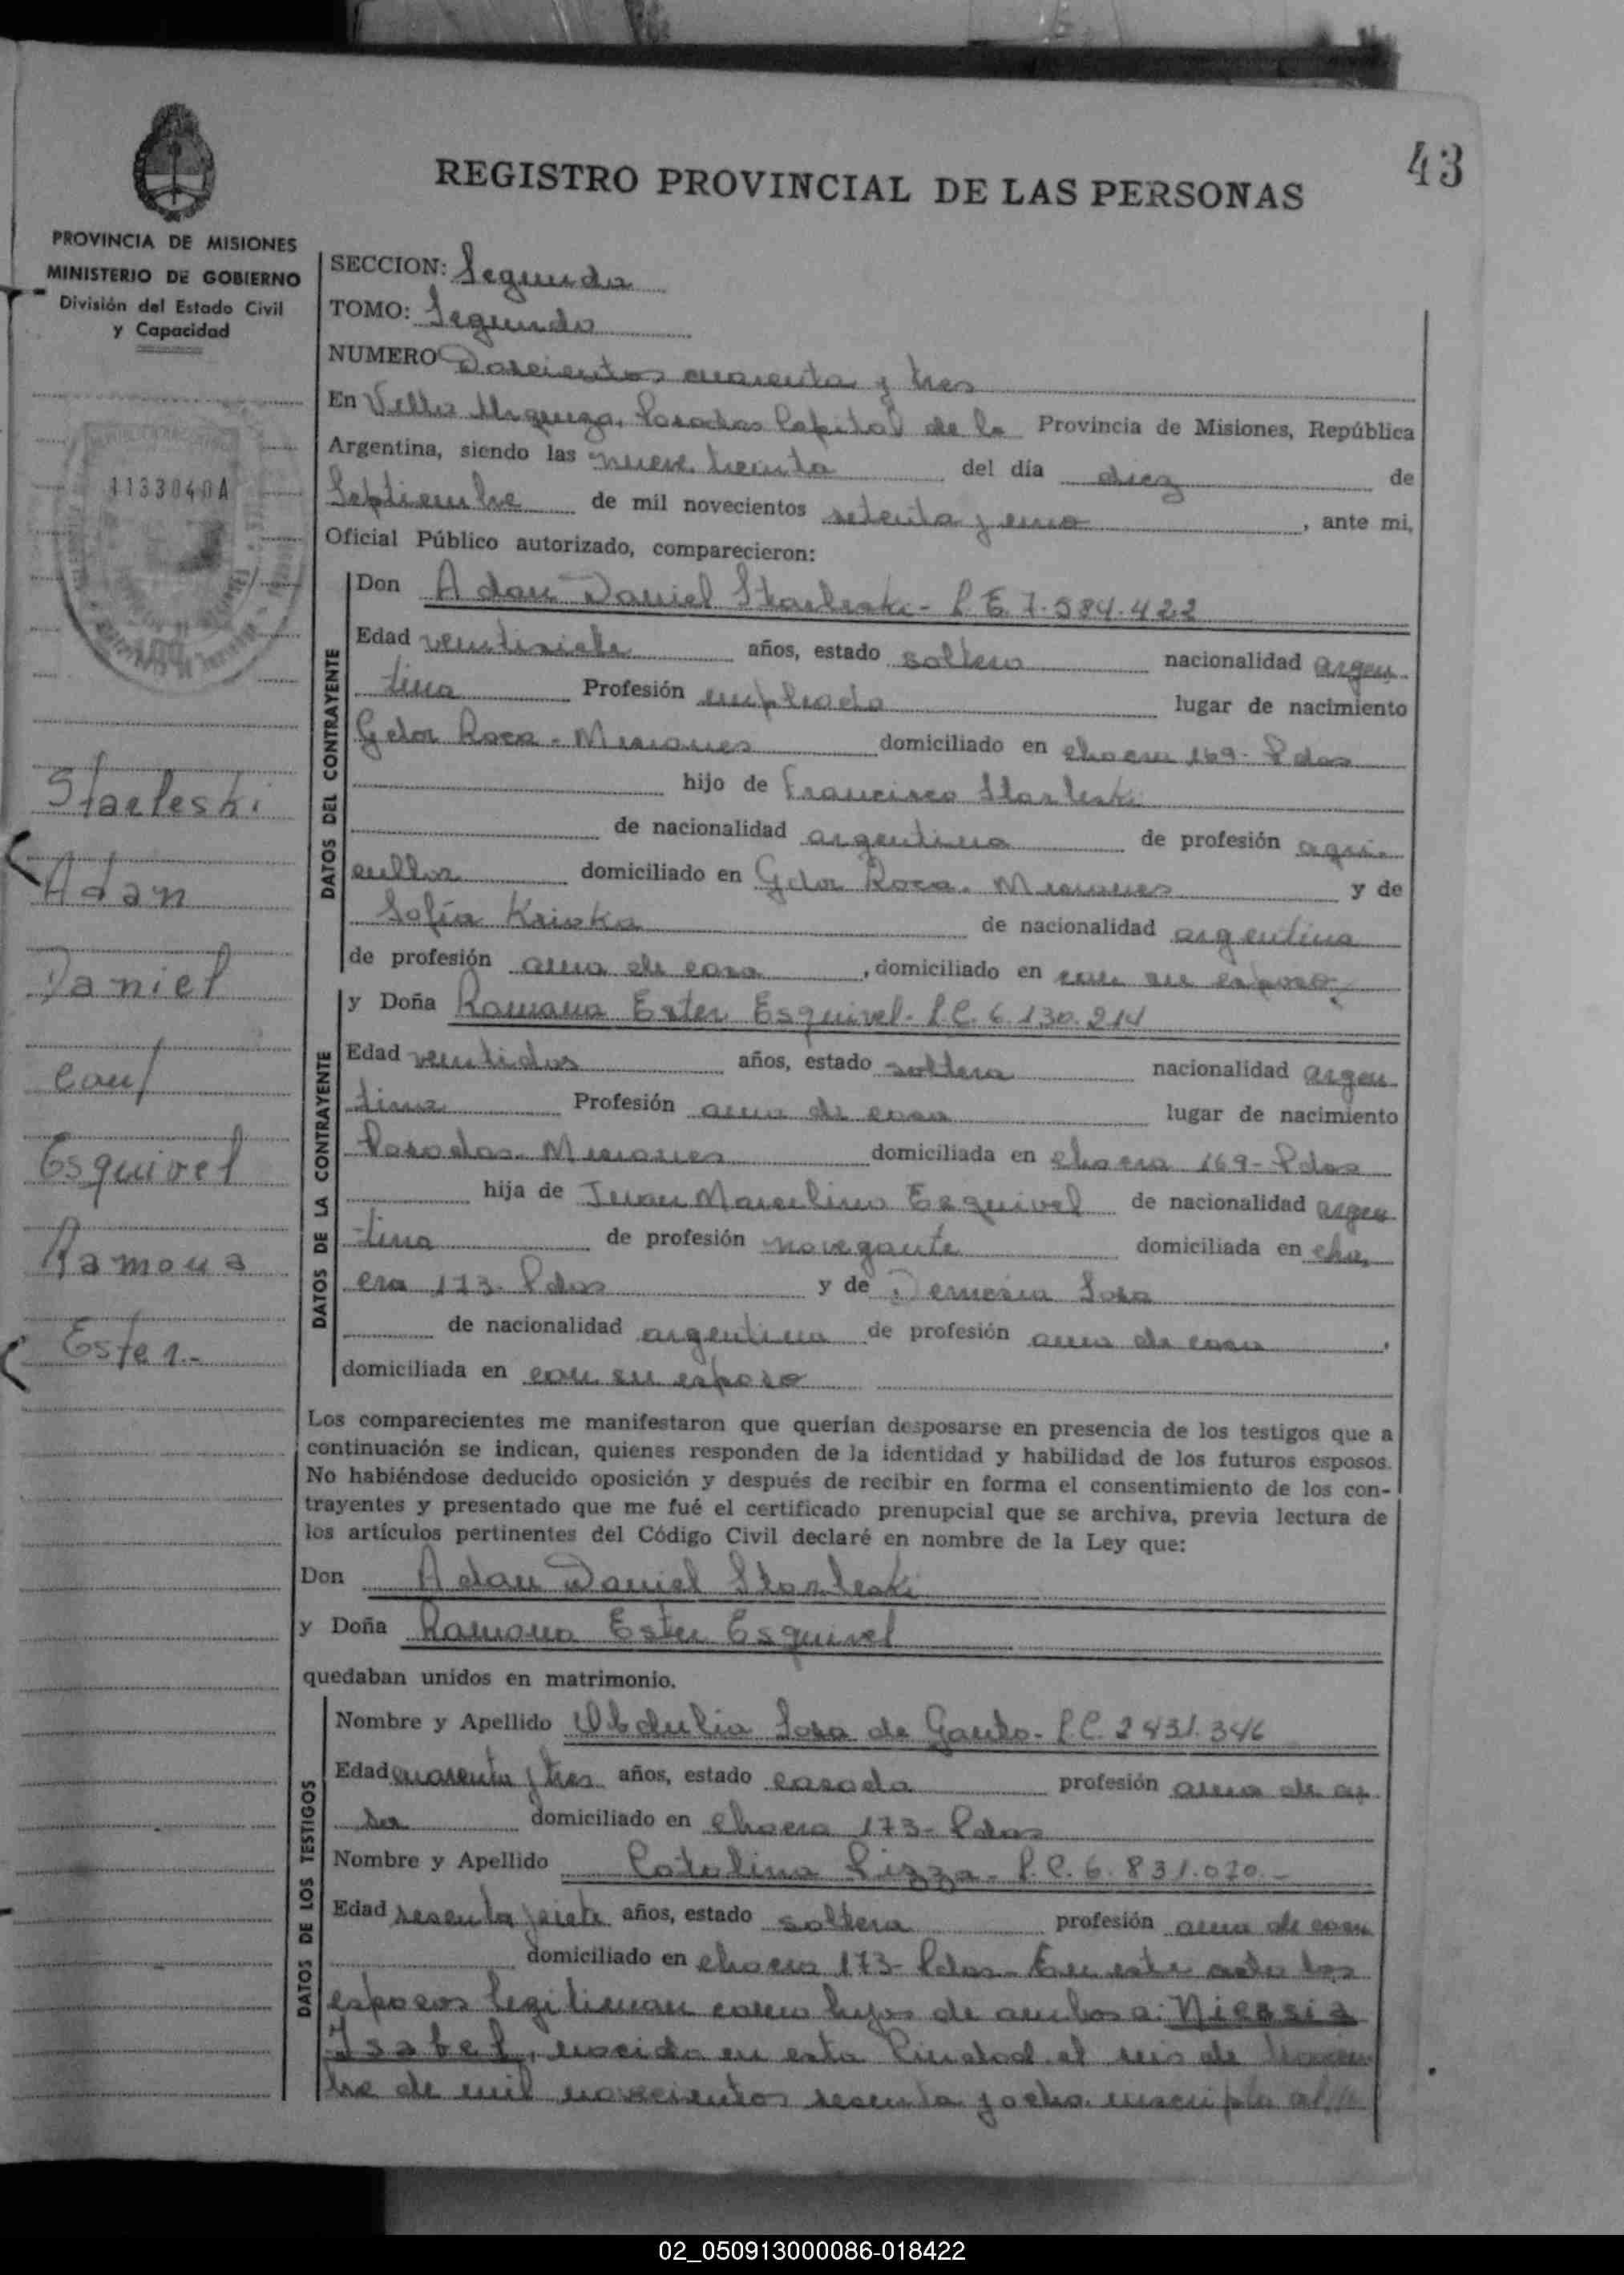 43
REGISTRO PROVINCIAL DE LAS PERSONAS
PROVINCIA DE MISIONES
MINISTERIO DE GOBIERNO
División del Estado Civil
y Capacidad
1133040A
Starleski
Adan
Daniel
con/
Esquivel
Ramona
Ester.-
SECCION: Segunda
TOMO: Segundo
NUMERO Doscientos cuarenta y tres
En Villa Urquiza, Posadas Capital de la Provincia de Misiones, República
Argentina, siendo las nueve treinta del día diez de
Septiembre de mil novecientos setenta y uno, ante mi,
Oficial Público autorizado, comparecieron:
DATOS DEL CONTRAYENTE
Don Adan Daniel Starleski - L.E. 7.584.422
Edad ventisiete años, estado soltero nacionalidad argen
tina Profesión empleado lugar de nacimiento
Gdor Roca - Misiones domiciliado en chacra 169 - Pdas
hijo de Francisco Starleski
de nacionalidad argentina de profesión agri-
cultor domiciliado en Gdor Roca. Misiones y de
Sofía de nacionalidad argentina
de profesión ama de casa, domiciliado en con su esposo.
DATOS DE LA CONTRAYENTE
y Doña Ramona Ester Esquivel - L.C. 6.130.214
Edad ventidos años, estado soltera nacionalidad argen
tina Profesión ama de casa lugar de nacimiento
Posadas. Misiones domiciliada en chacra 169 - Pdas
hija de Juan Marcelino Esquivel de nacionalidad argen
tina de profesión navegante domiciliada en cha,
cra 173. Pdas y de Demesia Sosa
de nacionalidad argentina de profesión ama de casa,
domiciliada en con su esposo
Los comparecientes me manifestaron que querían desposarse en presencia de los testigos que a
continuación se indican, quienes responden de la identidad y habilidad de los futuros esposos.
No habiéndose deducido oposición y después de recibir en forma el consentimiento de los con-
trayentes y presentado que me fué el certificado prenupcial que se archiva, previa lectura de
los artículos pertinentes del Código Civil declaré en nombre de la Ley que:
Don Adan Daniel Starleski
y Doña Ramona Ester Esquivel
quedaban unidos en matrimonio.
DATOS DE LOS TESTIGOS
Nombre y Apellido Obdulia Sosa de Gauto - L.C. 2431.346
Edad cuarenta y tres años, estado casada profesión ama de ca
sa domiciliado en chacra 173 - Pdas
Nombre y Apellido Catalina - L.C. 6.831.070.-
Edad sesenta y siete años, estado soltera profesión ama de casa
domiciliado en chacra 173 - Pdas - En este acto los
esposos legitiman como hijos de ambos a: Nicasia
Isabel, nacida en esta Ciudad el seis de
bre de mil novecientos sesenta y ocho. inscripta al
02_050913000086-018422